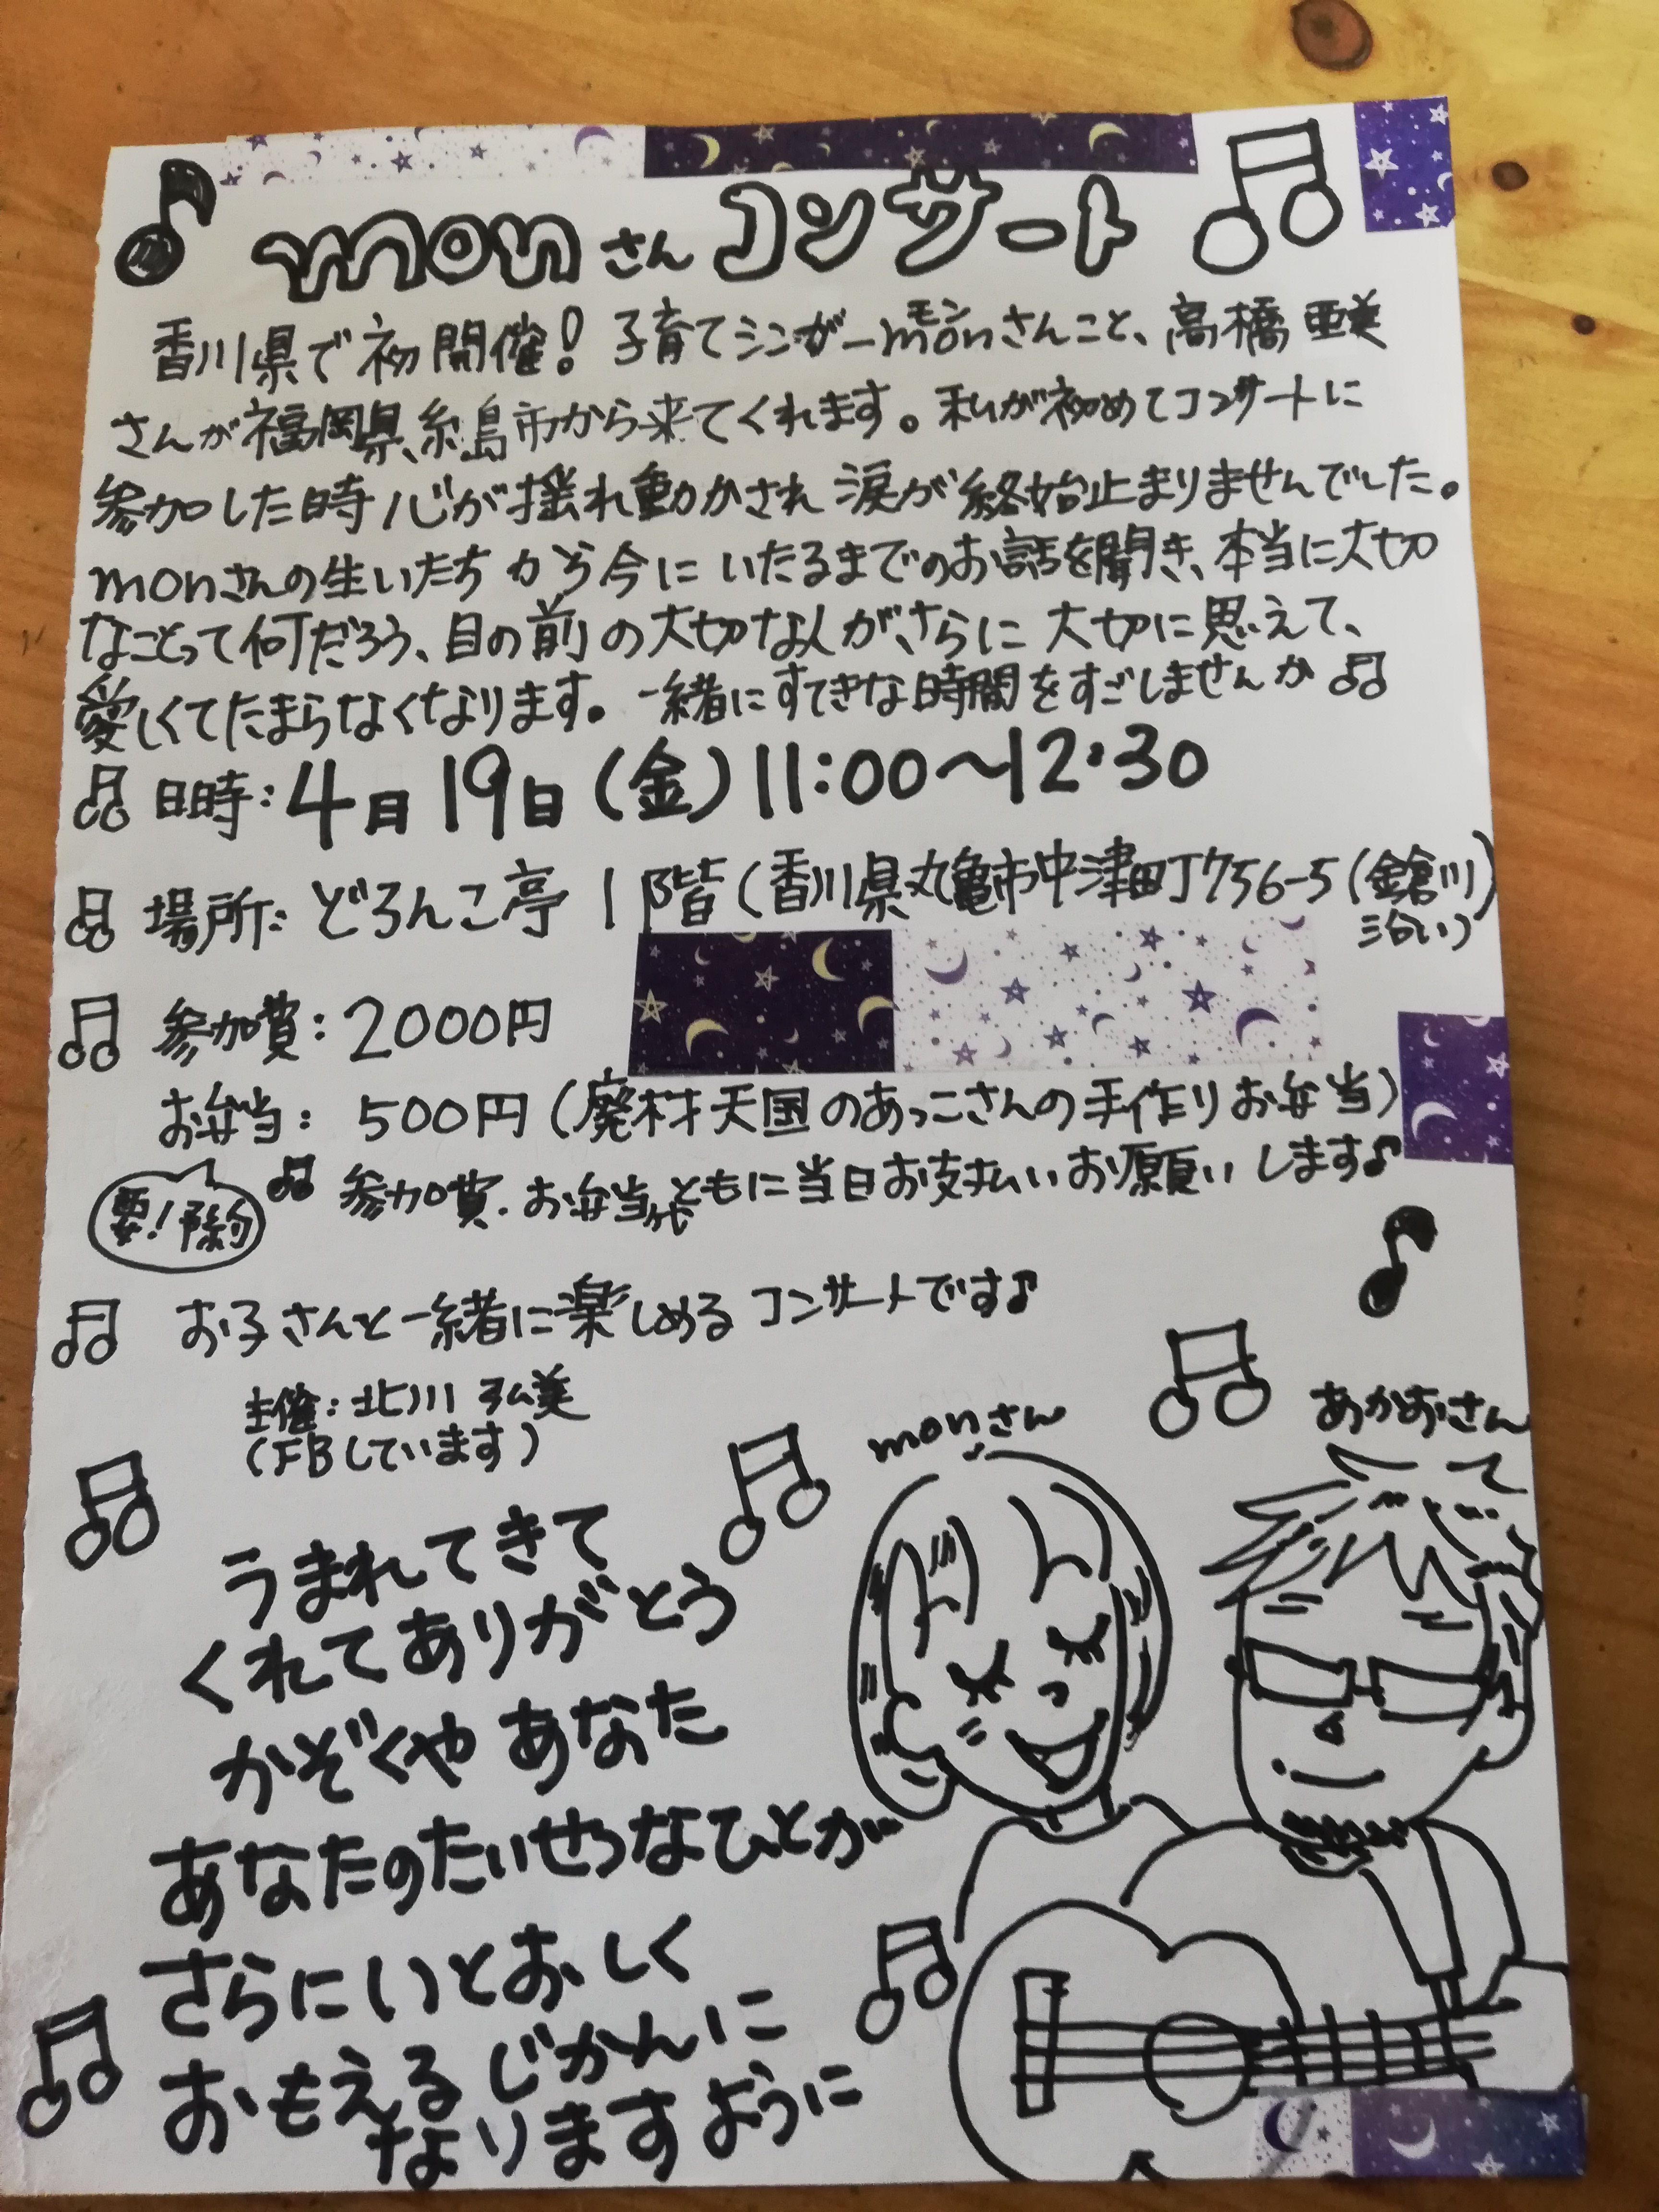 monさんコンサート
香川県で初開催!子育てシンガーmonさんこと、高橋亜美
モン
さんが福岡県糸島市から来てくれます。私が初めてコンサートに
参加した時心が揺れ動かされ涙が終始止まりませんでした。
monさんの生いたちから今にいたるまでのお話を聞き、本当に大切
なことって何だろう、目の前の大切な人が、さらに大切に思えて、
愛しくてたまらなくなります。一緒にすてきな時間をすごしませんか♫
♫ 日時:4月19日(金)11:00〜12:30
♫ 場所:どろんこ亭1階(香川県丸亀市中津町756-5(金倉川
沿い)
♫ 参加費:2000円
お弁当:500円(廃材天国のあっこさんの手作りお弁当)
要!予約
♫ 参加費・お弁当代ともに当日お支払いお願いします♪
♫ お子さんと一緒に楽しめるコンサートです♪
主催:北川弘美
(FBしています)
monさん
あかおさん
うまれてきて
くれてありがとう
かぞくや あなた
あなたのたいせつなひとが
さらにいとおしく
おもえるじかんに
なりますように